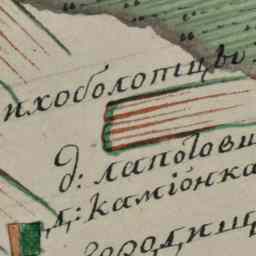 ихоболотцы
д: лапотов
д: камiонка
городищ